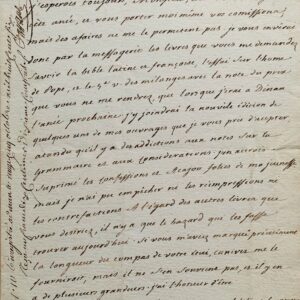 J'esperois toujours,
cete anée, de vous porter moi même vos comissions,
mais des afaires ne me le permetent pas. je vous envoie
donc par la messagerie les livres que vous me demandez
savoir la bible latine et françoise, l'essai sur l'homme
de Pope, et le 5e v. des mélanges avec la note du prix
que vous ne me rendrez que lorsque j'irai a Dinan
l'anée prochaine. j'y joindrai la nouvele édition de
quelques uns de mes ouvrages que je vous prie d'accepter
atandu qu'il y a des additions aux notes sur la
grammaire et aux considerations. j'en aurois
suprimé les confessions et Acajou folies de ma jeunesse
mais je n'ai pu empecher ni les réimpressions ni
les contrefactions. A l'égard des autres livres que
vous desirez, il n'y a que le hazard qui les fasse
trouver aujourdhui. Si vous m'aviez marqué précisément
la longueur du compas de votre ami, Canivet me le
fourniroit, mais il ne s'en souvient pas, et il y en
a de plusieurs grandeurs. j'ai l'honneur d'être